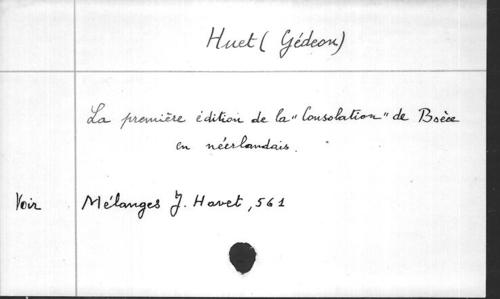 Huet (Gédeon)
La première édition de la "Consolation" de Boèce
en néerlandais.
Voir Mélanges J. Havet, 561